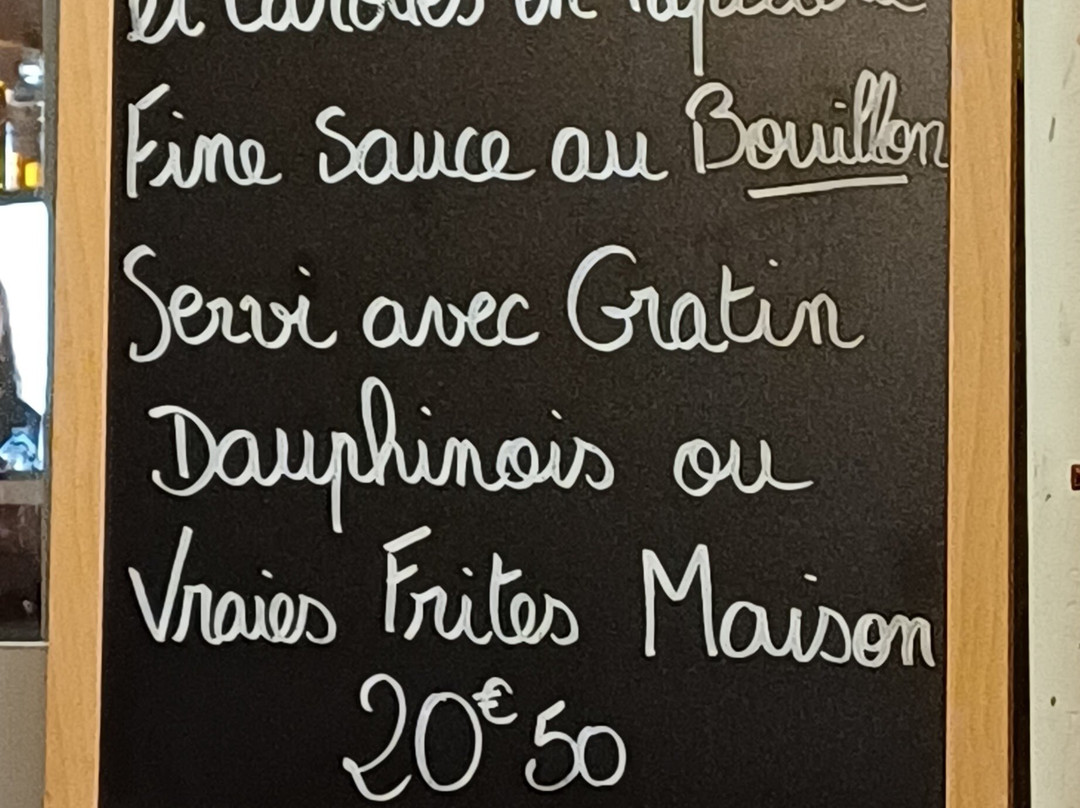 et carottes en
Fine Sauce au Bouillon
Servi avec Gratin
Dauphinois ou
Vraies Frites Maison
20€50